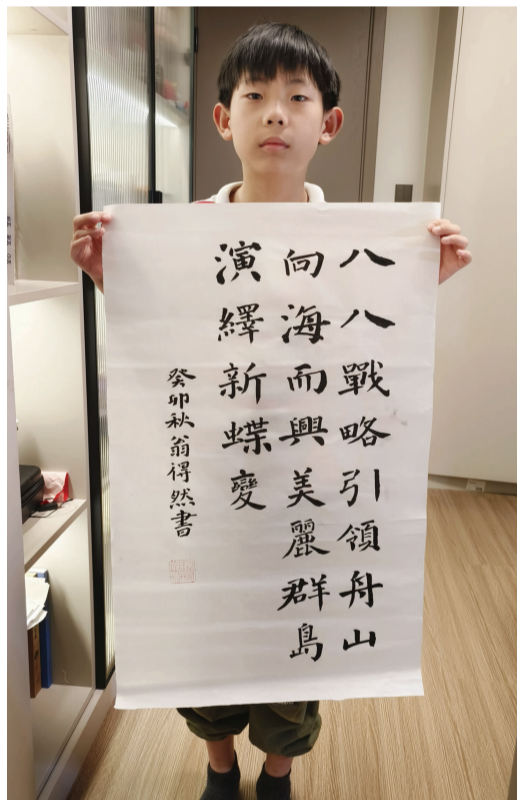 八八戰略引領舟山
向海而興美麗群島
演繹新蝶變
癸卯秋翁得然書